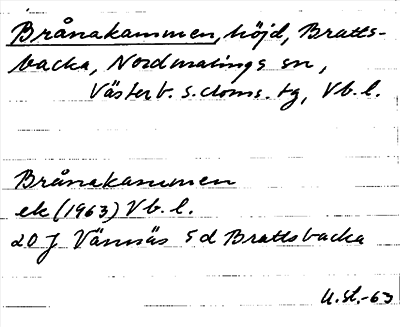 Brånakammen, höjd, Bratts-
backa, Nordmalings sn,
Västerb. s. doms. tg, Vb. l.
Brånakammen
ek (1963) Vb. l.
20 J Vännäs 5d Brattsbacka
U.st.-63